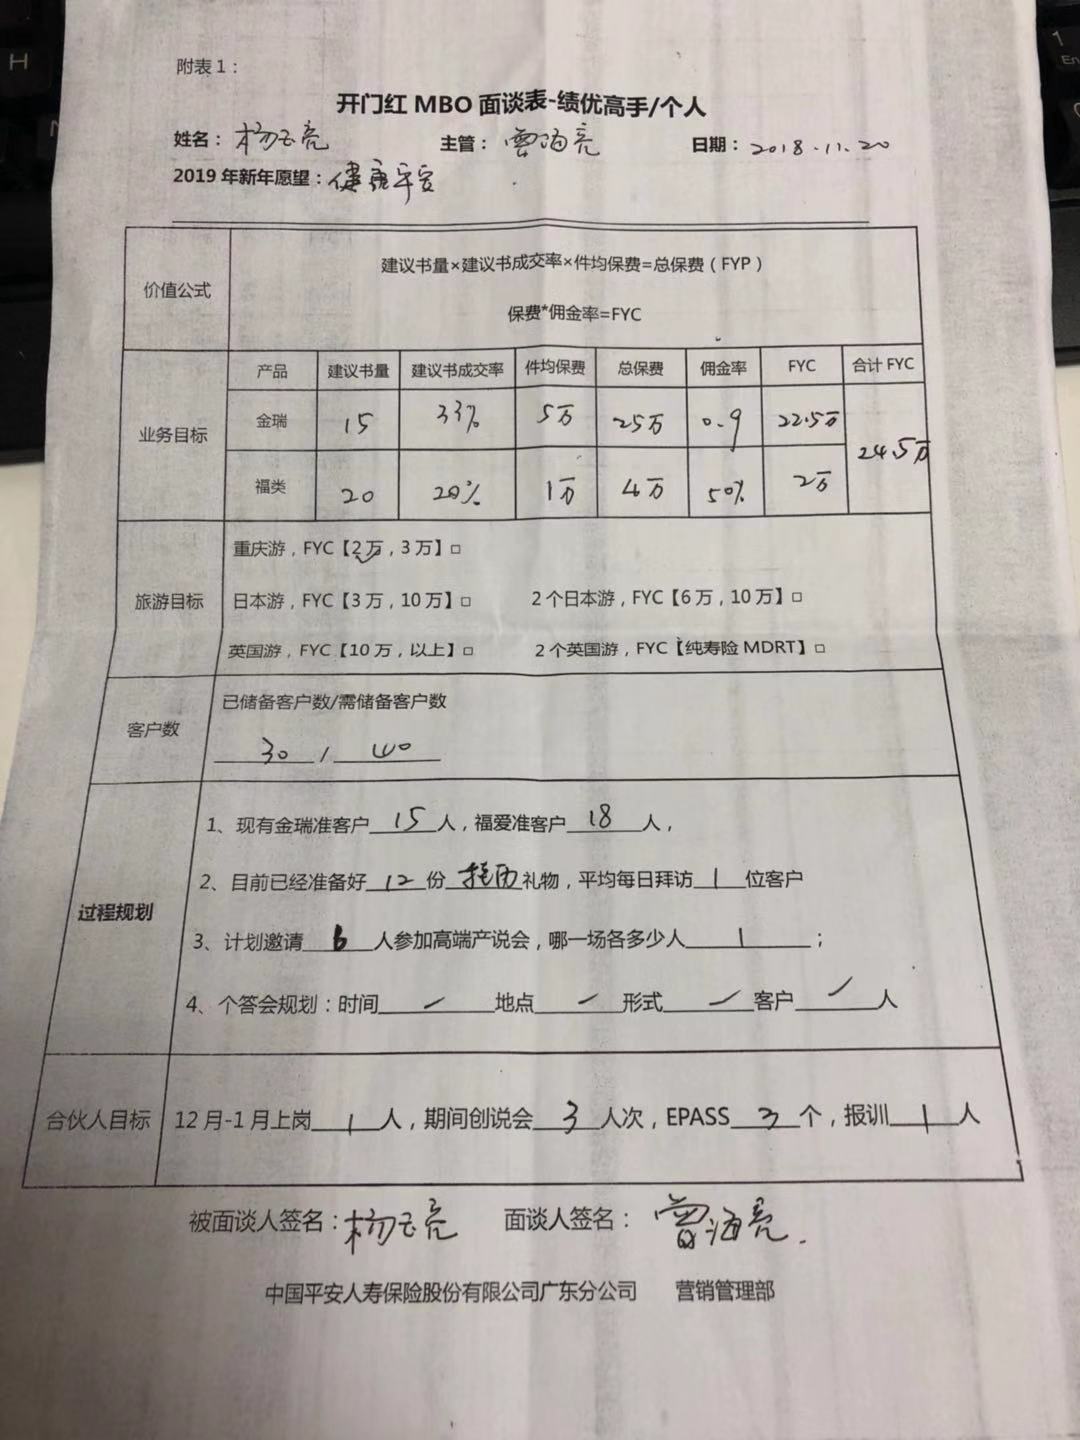 附表1：
开门红 MBO 面谈表-绩优高手/个人
姓名：杨玉亮 主管：曾海亮 日期：2018.11.20
2019年新年愿望：健康平安
价值公式
建议书量×建议书成交率×件均保费=总保费（FYP）
保费*佣金率=FYC
业务目标
产品 建议书量 建议书成交率 件均保费 总保费 佣金率 FYC 合计 FYC
金瑞 15 33% 5万 25万 0.9 22.5万
24.5万
福类 20 20% 1万 4万 50% 2万
旅游目标
重庆游，FYC【2万，3万】□
日本游，FYC【3万，10万】□ 2个日本游，FYC【6万，10万】□
英国游，FYC【10万，以上】□ 2个英国游，FYC【纯寿险 MDRT】□
客户数
已储备客户数/需储备客户数
30 / 40
过程规划
1、现有金瑞准客户15人，福爱准客户18人，
2、目前已经准备好12份礼物，平均每日拜访1位客户
3、计划邀请6人参加高端产说会，哪一场各多少人1；
4、个答会规划：时间 / 地点 / 形式 / 客户 / 人
合伙人目标
12月-1月上岗1人，期间创说会3人次，EPASS 3个，报训1人
被面谈人签名：杨玉亮 面谈人签名：曾海亮.
中国平安人寿保险股份有限公司广东分公司 营销管理部
H
1
En